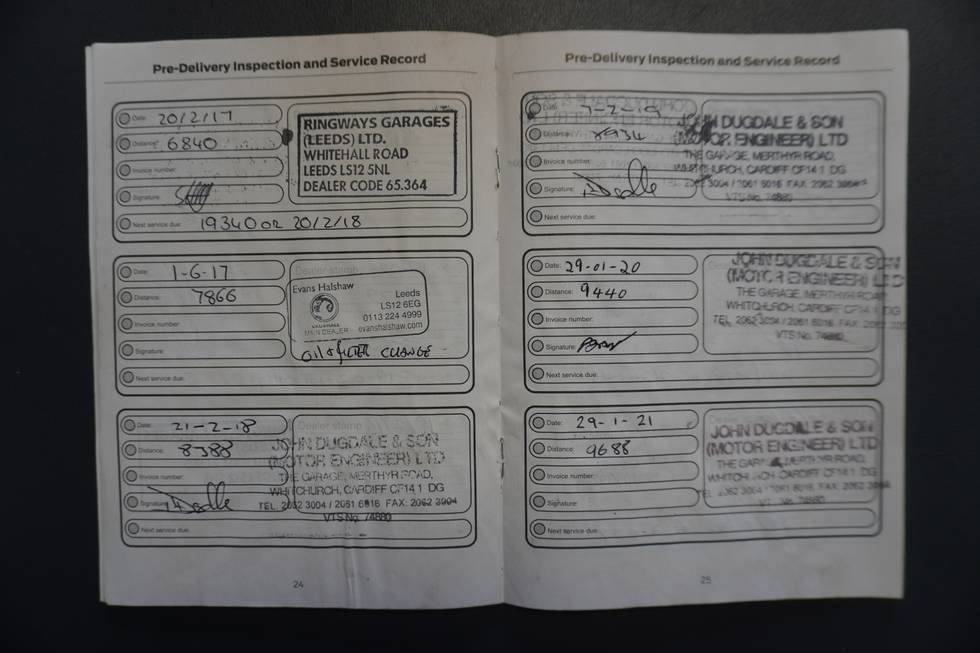 Pre-Delivery Inspection and Service Record
Date: 20/2/17
Distance: 6840
Invoice number:
Signature:
RINGWAYS GARAGES
(LEEDS) LTD.
WHITEHALL ROAD
LEEDS LS12 5NL
DEALER CODE 65.364
Next service due: 19340 OR 20/2/18
Date: 1-6-17
Distance: 7866
Invoice number:
Signature:
Dealer stamp
Evans Halshaw
VAUXHALL
MAIN DEALER
Leeds
LS12 6EG
0113 224 4999
evanshalshaw.com
OIL & FILTER CHANGE
Next service due:
Date: 21-2-18
Distance: 8388
Invoice number:
Signature:
Dealer stamp
JOHN DUGDALE & SON
(MOTOR ENGINEER) LTD
THE GARAGE, MERTHYR ROAD,
WHITCHURCH, CARDIFF CF14 1 DG
TEL. 2062 3004 / 2061 6816 FAX: 2062 3904
VTS No. 74880
Next service due:
24
Pre-Delivery Inspection and Service Record
Date:
Distance: 8934
Invoice number:
Signature:
JOHN DUGDALE & SON
(MOTOR ENGINEER) LTD
THE GARAGE, MERTHYR ROAD,
WHITCHURCH, CARDIFF CF14 1 DG
VTS No. 74880
Next service due:
Date: 29-01-20
Distance: 9440
Invoice number:
Signature:
JOHN DUGDALE & SON
(MOTOR ENGINEER) LTD
THE GARAGE, MERTHYR ROAD
WHITCHURCH, CARDIFF CF14 1 DG
VTS No. 74880
Next service due:
Date: 29-1-21
Distance: 9688
Invoice number:
Signature:
JOHN DUGDALE & SON
(MOTOR ENGINEER) LTD
THE GARAGE, MERTHYR ROAD,
WHITCHURCH, CARDIFF CF14 1 DG
Next service due:
25